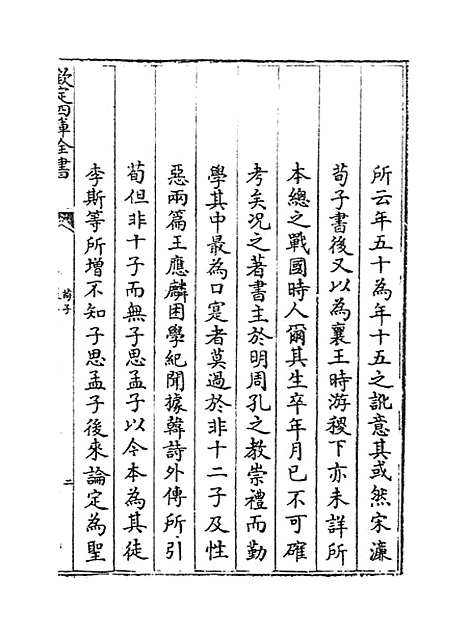 所云年五十為年十五之訛意其或然宋濂
荀子書後又以為襄王時游稷下亦未詳所
本總之戰國時人爾其生卒年月已不可確
考矣况之著書主於明周孔之教崇禮而勤
學其中最為口寔者莫過於非十二子及性
惡兩篇王應麟困學紀聞據韓詩外傳所引
荀但非十子而無子思孟子以今本為其徒
李斯等所增不知子思孟子後來論定為聖
欽定四庫全書
荀子
二